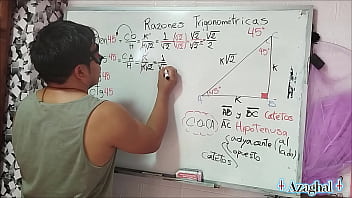 Razones Trigonometricas
en 45° = CO/H = K/K√2 = 1/√2 (√2)/(√2) = √2/√2² = √2/2
45° = CA/H = K/K√2 = 1/√
tg45
45°
K√2
K
45°
K
AB y BC Catetos
AC Hipotenusa
adyacente (al lado)
catetos
opuesto
Azaghal